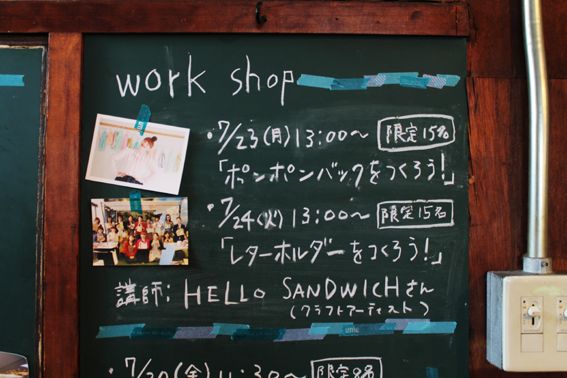 work shop
・7/23(月)13:00〜 限定15名
「ポンポンバックをつくろう!」
・7/24(火)13:00〜 限定15名
「レターホルダーをつくろう!」
講師: HELLO SANDWICHさん
(クラフトアーティスト)
(金)11:30〜